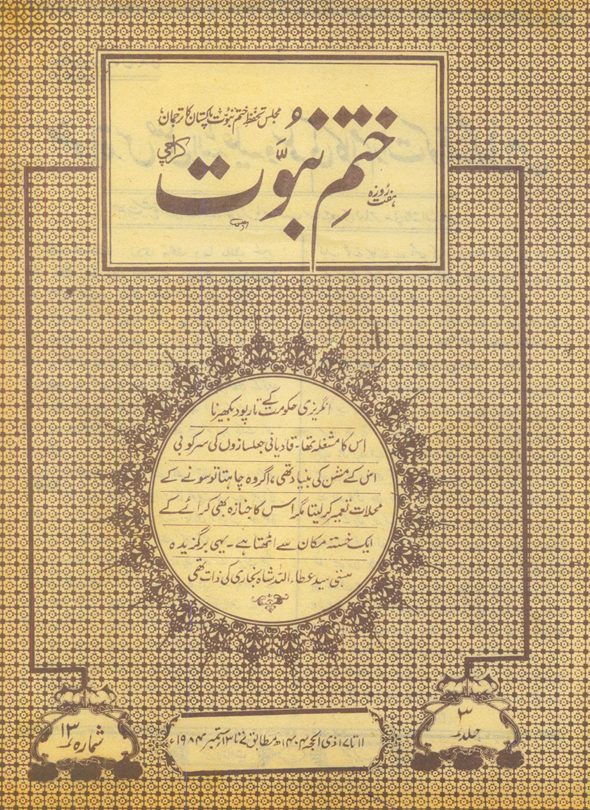 مجلس تحفظ ختم نبوت پاکستان کا ترجمان
ہفت روزہ
ختمِ نبوّت
کراچی
انگریزی حکومت کے تار پود بکھیرنا
اس کا مشغلہ تھا۔ قادیانی جعلسازوں کی سرکوبی
اس کے مشن کی بنیاد تھی، اگر وہ چاہتا تو سونے کے
محلات تعمیر کر لیتا مگر اس کا جنازہ بھی کرائے کے
ایک خستہ مکان سے اٹھتا ہے۔ یہی برگزیدہ
ہستی سید عطاء اللہ شاہ بخاری کی ذات تھی
جلد ۳
۱۱ تا ۱۷ ذی الحجہ ۱۴۰۴ھ مطابق ۷ تا ۱۳ ستمبر ۱۹۸۴ء
شمارہ ۱۳